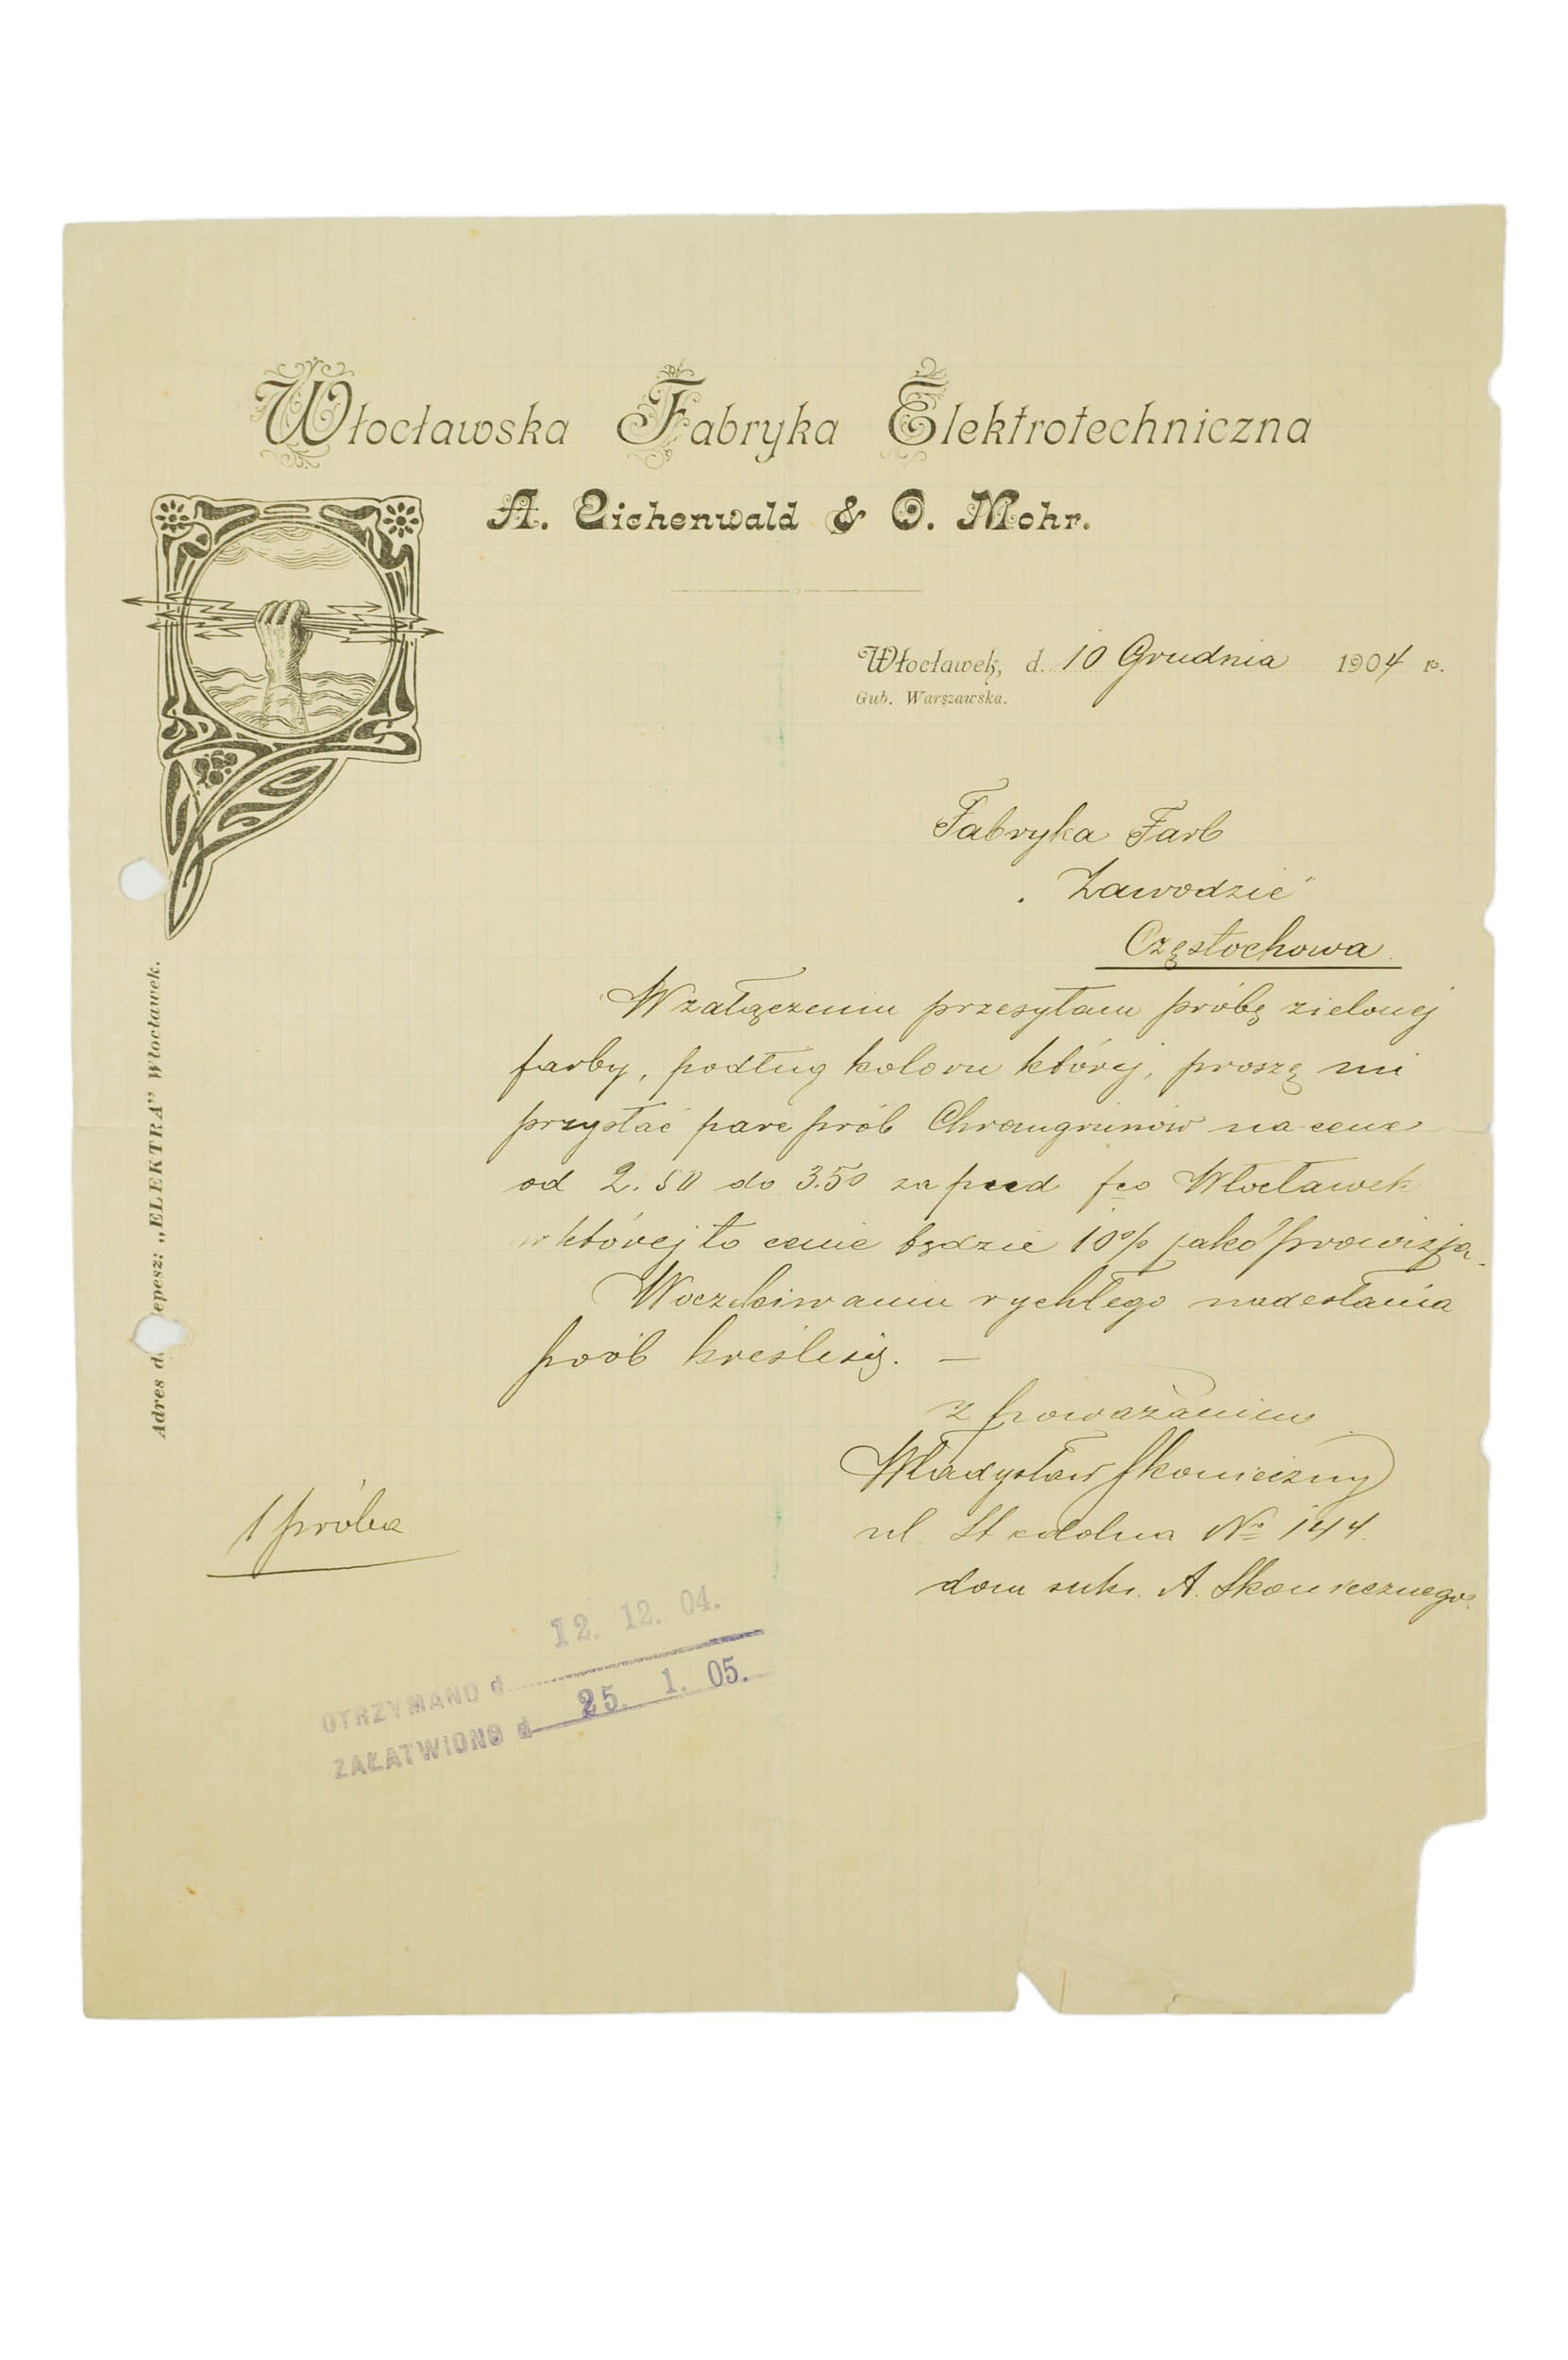 Włocławska Fabryka Elektrotechniczna
A. Eichenwald & O. Mohr.
Włocławek, d. 10 Grudnia 1904 r.
Gub. Warszawska.
Fabryka Farb
„Zawodzie"
Częstochowa
W załączeniu przesyłam próbę zielonej
farby, podług koloru której, proszę mi
przysłać parę prób Chromgrünów na cenę
od 2.50 do 3.50 za pud fco Włocławek
w której to cenie będzie 10% jako prowizja.
W oczekiwaniu rychłego nadesłania
prób kreślę się. —
z poważaniem
Władysław Skonieczny
ul. № 144.
dom suks. A. Skoniecznego
1 próba
Adres d epesz: „ELEKTRA" Włocławek.
12. 12. 04.
OTRZYMANO d
25. 1. 05.
ZAŁATWIONO d